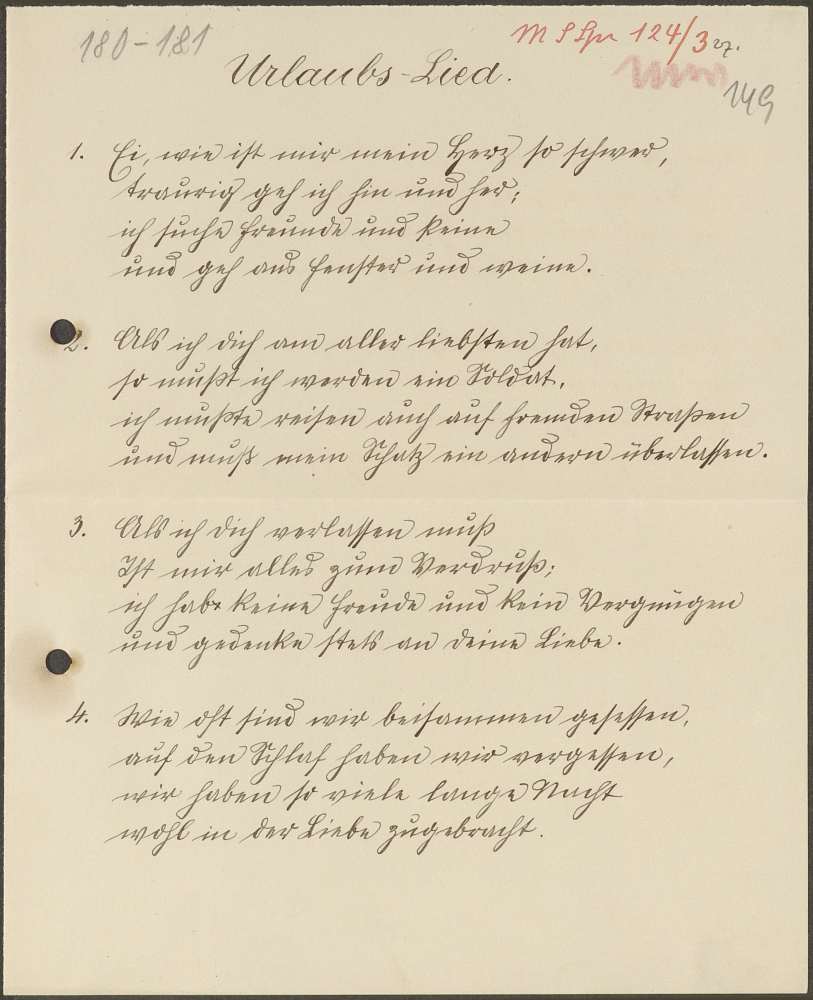 180-181
M S Spr 124/3 27.
149
Urlaubs-Lied.
1. Ei, wie ist mir mein Herz so schwer,
traurig geh ich hin und her;
ich suche Freunde und keine
und geh ans Fenster und weine.
2. Als ich dich am aller liebsten hat,
so mußt ich werden ein Soldat,
ich mußte reisen auch auf fremden Straßen
und muß mein Schatz ein andern überlassen.
3. Als ich dich verlassen muß
Ist mir alles zum Verdruß;
ich habe keine Freude und kein Vergnügen
und gedenke stets an deine Liebe.
4. Wie oft sind wir beisammen gesessen,
auf den Schlaf haben wir vergessen,
wir haben so viele lange Nacht
wohl in der Liebe zugebracht.